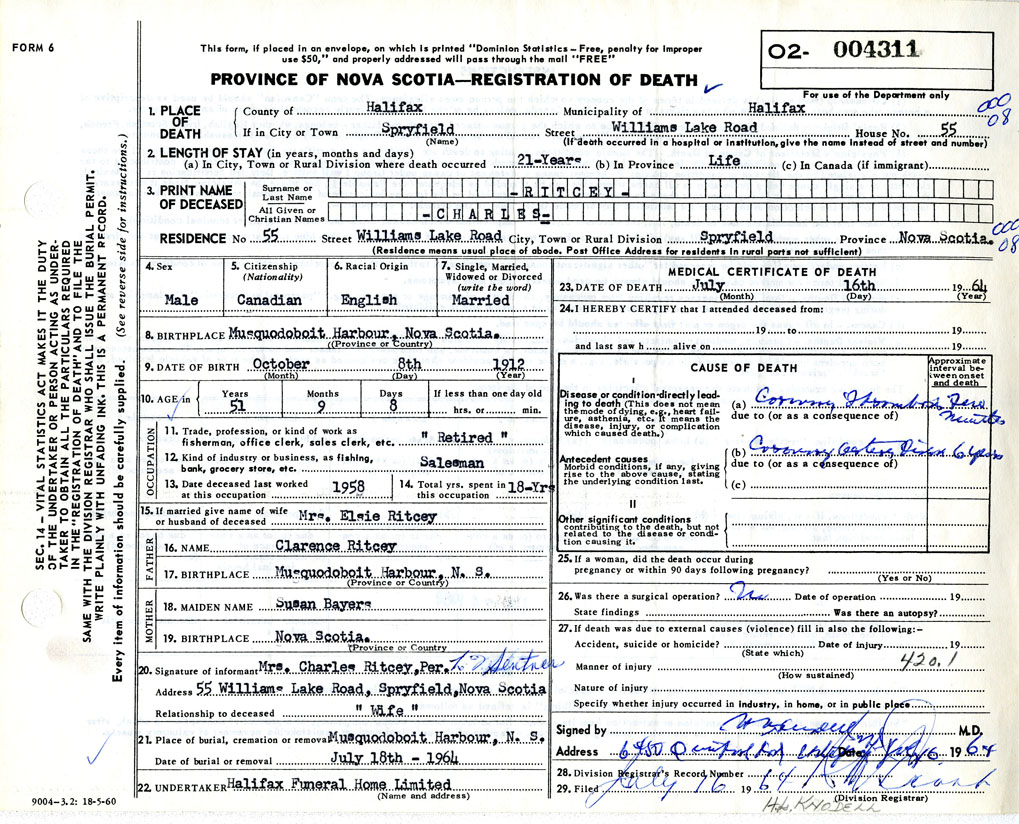 FORM 6
This form, if placed in an envelope, on which is printed "Dominion Statistics – Free, penalty for improper
use $50," and properly addressed will pass through the mail "FREE"
PROVINCE OF NOVA SCOTIA—REGISTRATION OF DEATH
02- 004311
For use of the Department only
000
08
1. PLACE OF DEATH
County of Halifax Municipality of Halifax
If in City or Town Spryfield Street Williams Lake Road House No. 55
(Name) (If death occurred in a hospital or institution, give the name instead of street and number)
2. LENGTH OF STAY (in years, months and days)
(a) In City, Town or Rural Division where death occurred 21-Years (b) In Province Life (c) In Canada (if immigrant)
3. PRINT NAME OF DECEASED
Surname or Last Name -RITCEY-
All Given or Christian Names -CHARLES-
000
08
RESIDENCE No 55 Street Williams Lake Road City, Town or Rural Division Spryfield Province Nova Scotia.
(Residence means usual place of abode. Post Office Address for residents in rural parts not sufficient)
4. Sex
Male
5. Citizenship
(Nationality)
Canadian
6. Racial Origin
English
7. Single, Married,
Widowed or Divorced
(write the word)
Married
8. BIRTHPLACE Musquodoboit Harbour, Nova Scotia.
((Province or Country)
9. DATE OF BIRTH October 8th 1912
(Month) (Day) (Year)
10. AGE in
Years Months Days If less than one day old
51 9 8 hrs. or min.
OCCUPATION
11. Trade, profession, or kind of work as
fisherman, office clerk, sales clerk, etc. " Retired "
12. Kind of industry or business, as fishing,
bank, grocery store, etc. Salesman
13. Date deceased last worked
at this occupation 1958
14. Total yrs. spent in
this occupation 18-Yrs
15. If married give name of wife
or husband of deceased Mrs. Elsie Ritcey
FATHER
16. NAME Clarence Ritcey
17. BIRTHPLACE Musquodoboit Harbour, N. S.
(Province or Country)
MOTHER
18. MAIDEN NAME Susan Bayers
19. BIRTHPLACE Nova Scotia.
(Province or Country
20. Signature of informant Mrs. Charles Ritcey, Per.
Address 55 Williams Lake Road, Spryfield, Nova Scotia
Relationship to deceased " Wife "
21. Place of burial, cremation or removal Musquodoboit Harbour, N. S.
Date of burial or removal July 18th - 1964
22. UNDERTAKER Halifax Funeral Home Limited
(Name and address)
MEDICAL CERTIFICATE OF DEATH
23. DATE OF DEATH July 16th 1964
(Month) (Day) (Year)
24. I HEREBY CERTIFY that I attended deceased from:
19 to 19
and last saw h alive on 19
CAUSE OF DEATH
Approximate
interval be-
tween onset
and death
I
Disease or condition directly lead-
ing to death (This does not mean
the mode of dying, e.g., heart fail-
ure, asthenia, etc. It means the
disease, injury, or complication
which caused death.)
(a) Coronary Thrombosis Few minutes
due to (or as a consequence of)
Antecedent causes
Morbid conditions, if any, giving
rise to the above cause, stating
the underlying condition last.
(b) Coronary artery Disease 6 years
due to (or as a consequence of)
(c)
II
Other significant conditions
contributing to the death, but not
related to the disease or condi-
tion causing it.
25. If a woman, did the death occur during
pregnancy or within 90 days following pregnancy?
(Yes or No)
26. Was there a surgical operation? No Date of operation 19
State findings Was there an autopsy?
27. If death was due to external causes (violence) fill in also the following:–
Accident, suicide or homicide? Date of injury 19
(State which)
420.1
Manner of injury
(How sustained)
Nature of injury
Specify whether injury occurred in industry, in home, or in public place
Signed by M.D.
Address Date 16 1964
28. Division Registrar's Record Number
29. Filed July 16 1964
(Division Registrar)
H.L. KNODELL
SEC. 14 – VITAL STATISTICS ACT MAKES IT THE DUTY
OF THE UNDERTAKER OR PERSON ACTING AS UNDER-
TAKER TO OBTAIN ALL THE PARTICULARS REQUIRED
IN THE "REGISTRATION OF DEATH" AND TO FILE THE
SAME WITH THE DIVISION REGISTRAR WHO SHALL ISSUE THE BURIAL PERMIT.
WRITE PLAINLY WITH UNFADING INK. THIS IS A PERMANENT RECORD.
Every item of information should be carefully supplied. (See reverse side for instructions.)
9004-3.2: 18-5-60